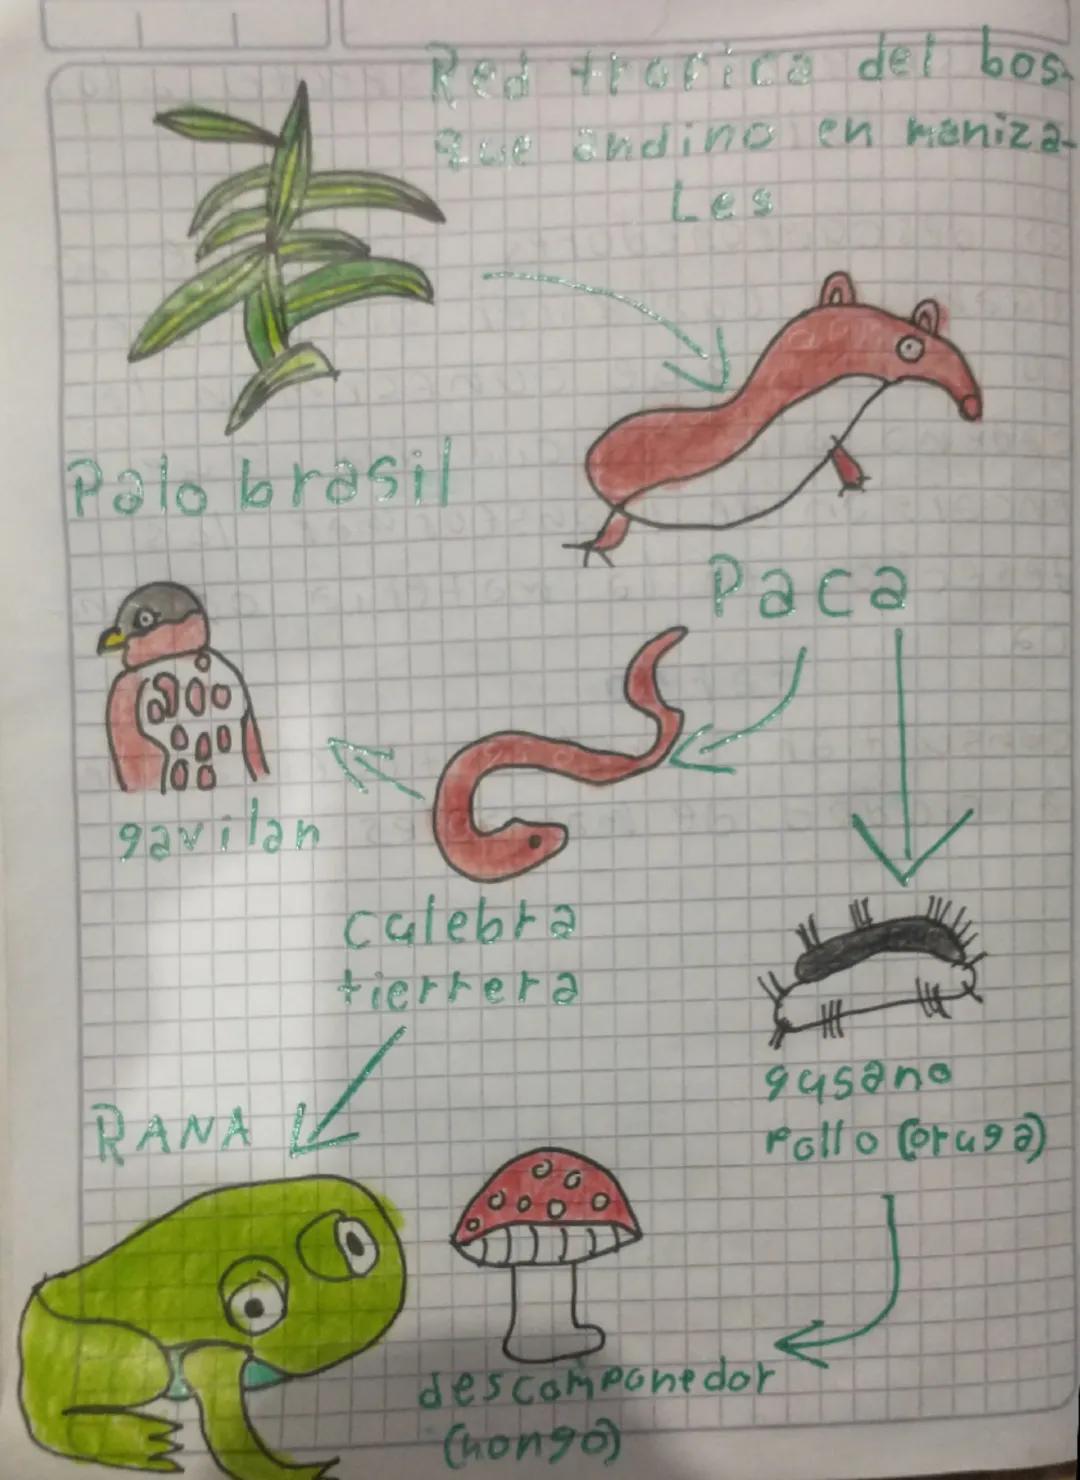 Red trofica del bos-
que andino en maniza-
Les
Palo brasil
Paca
gavilan
culebra
tierrera
gusano
Pollo (oruga)
RANA
descomponedor
(hongo)